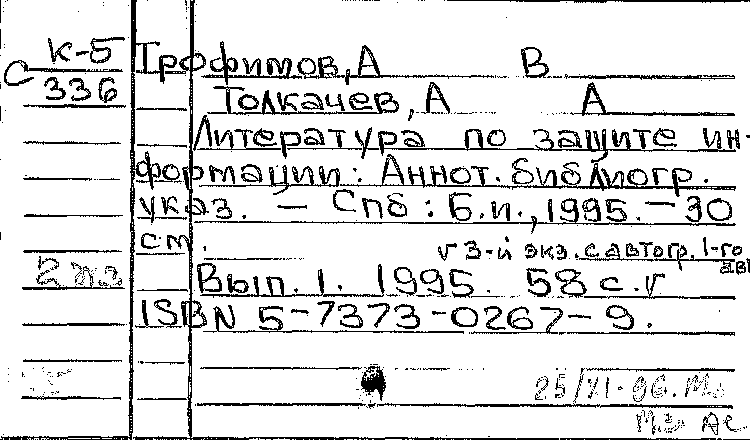 К-5 Трофимов, А В
С 336 Толкачев, А А
Литература по защите ин-
формации: Аннот. библиогр.
указ. — Спб: Б.и., 1995. — 30
см.
v 3-й экз. с автогр. 1-го авт
Вып. 1. 1995. 58 с. v
ISBN 5-7373-0267-9.
25/VI-96. М.